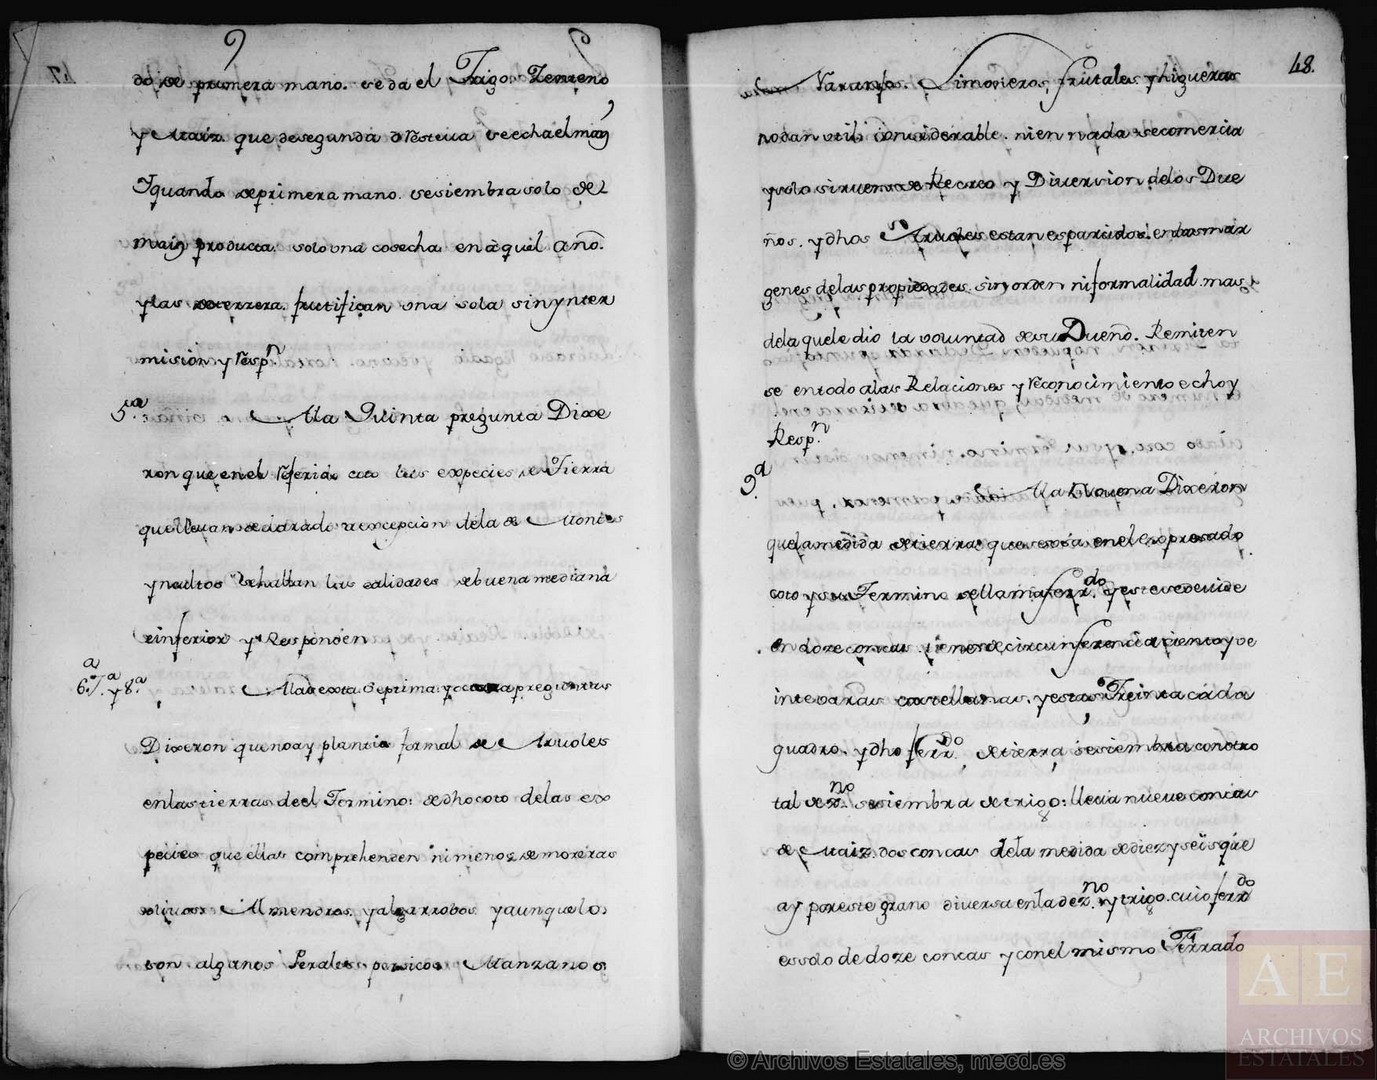 do, de primera mano. se da el Trigo Zenteno
y Maiz. que de segunda obstiua se echa el maiz
Y quando de primera mano. se siembra solo de
maiz producta. solo una cosecha en aquel año.
y las de terrera. frutifican una sola sin ynter
mision y Resp.n
5.a A la Quinta pregunta Dixe
ron que en el referido coto las expecies de Tierra
que lleuan declarado a excepcion de la de Montes
y ncultos se hallan las calidades de buena mediana
e inferior y Responden
6.a 7.a y 8.a A la sexta Septima y octaua preguntas
Dixeron que no ay plantio formal de Aruoles
en las tierras de el Termino: de dho coto de las ex
pecies que ellas comprehenden ni menos de moreras
oliuos Almendros y algarrobos y aunque lo
son algunos Perales persicos Manzanos
48.
Naranjos. Limoneros, frutales y higueras
no dan utili considerable. ni en nada se comercia
y solo siruen de Recreo y Diuersion de los Due
ños. y dhos Aruoles estan esparcidos en las mar
genes de las propiedades. sin orden ni formalidad. mas
de la que le dio la voluntad de su Dueño. Remiten
se en todo a las Relaciones y reconocimiento echo y
Resp.n
9.a A la Nouena Dixeron
que la medida de tierra que se usa en el expresado
coto y su Termino se llama ferr.do y este se deuide
en doze concas tiene de circunferencia ciento y ve
inte varas castellanas. y estas Treinta cada
quadro. y dho ferr.do de tierra se siembra con otro
tal de z.no se siembra de trigo: lleua nueue concas
de Maiz. dos concas de la medida de diez y seis que
ay por este grano diuersa en la de z.no y trigo. cuio ferr.do
es solo de doze concas y con el mismo Ferrado
A E
ARCHIVOS
ESTATALES
© Archivos Estatales, mecd.es